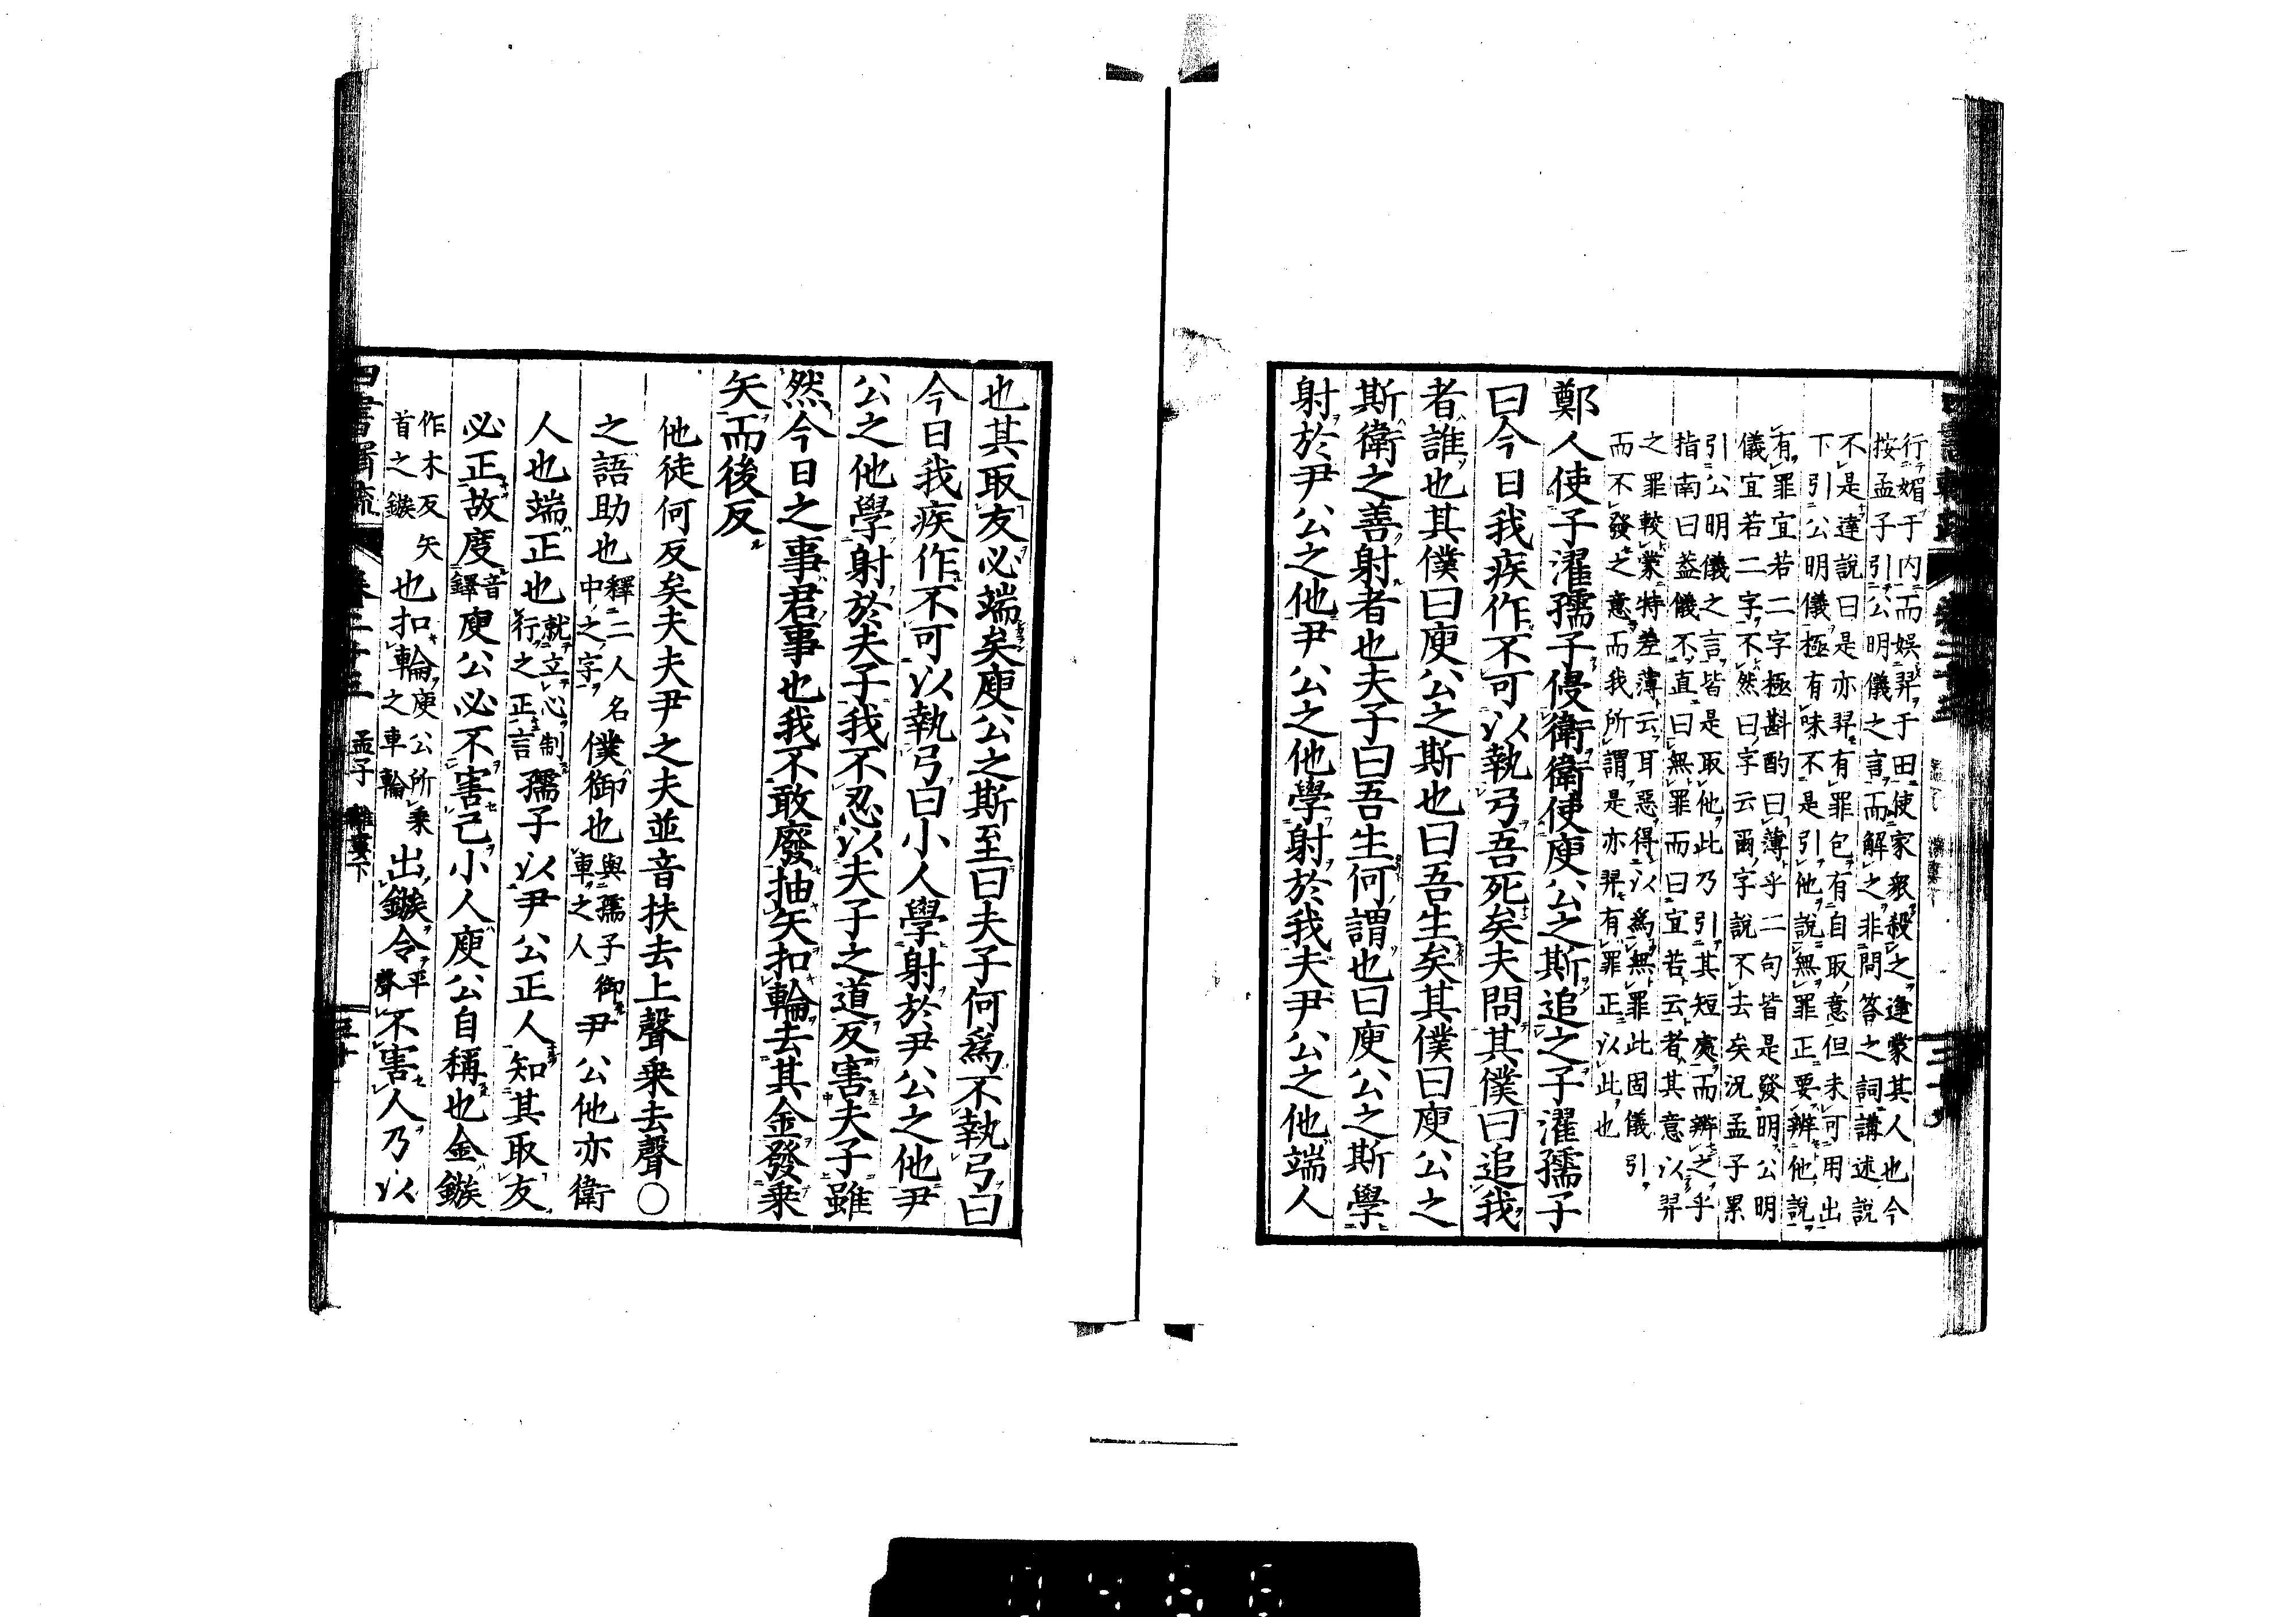 行媚于内而娯羿于田使家衆殺之逢蒙其人也今
按孟子引公明儀之言而解之非問答之詞講述説
不是達説曰是亦羿有罪包有自取意但未可用出
下引公明儀極有味不是引他説無罪正要辨他説
有罪宜若二字極斟酌曰薄乎二句皆是發明公明
儀宜若二字不然曰字云爾字説不去矣況孟子累
引公明儀之言皆是取他此乃引其短處而辨之乎
指南曰盖儀不直曰無罪而曰宜若云者其意以羿
之罪較蒙特差薄云耳惡得以爲無罪此固儀引
而不發之意而我所謂是亦羿有罪正以此也
鄭人使子濯孺子侵衛衛使庾公之斯追之子濯孺子
曰今日我疾作不可以執弓吾死矣夫問其僕曰追我
者誰也其僕曰庾公之斯也曰吾生矣其僕曰庾公之
斯衛之善射者也夫子曰吾生何謂也曰庾公之斯學
射於尹公之他尹公之他學射於我夫尹公之他端人
也其取友必端矣庾公之斯至曰夫子何爲不執弓曰
今日我疾作不可以執弓曰小人學射於尹公之他尹
公之他學射於夫子我不忍以夫子之道反害夫子雖
然今日之事君事也我不敢廢抽矢扣輪去其金發乗
矢而後反
他徒何反矣夫夫尹之夫並音扶去上聲乗去聲○
之語助也釋二人名中之字僕御也與孺子御車之人尹公他亦衛
人也端正也就立心制行之正言孺子以尹公正人知其取友
必正故度音鐸庾公必不害己小人庾公自稱也金鏃
作木反矢首之鏃也扣輪庾公所乗之車輪出鏃令平聲不害人乃以
孟子 離婁下